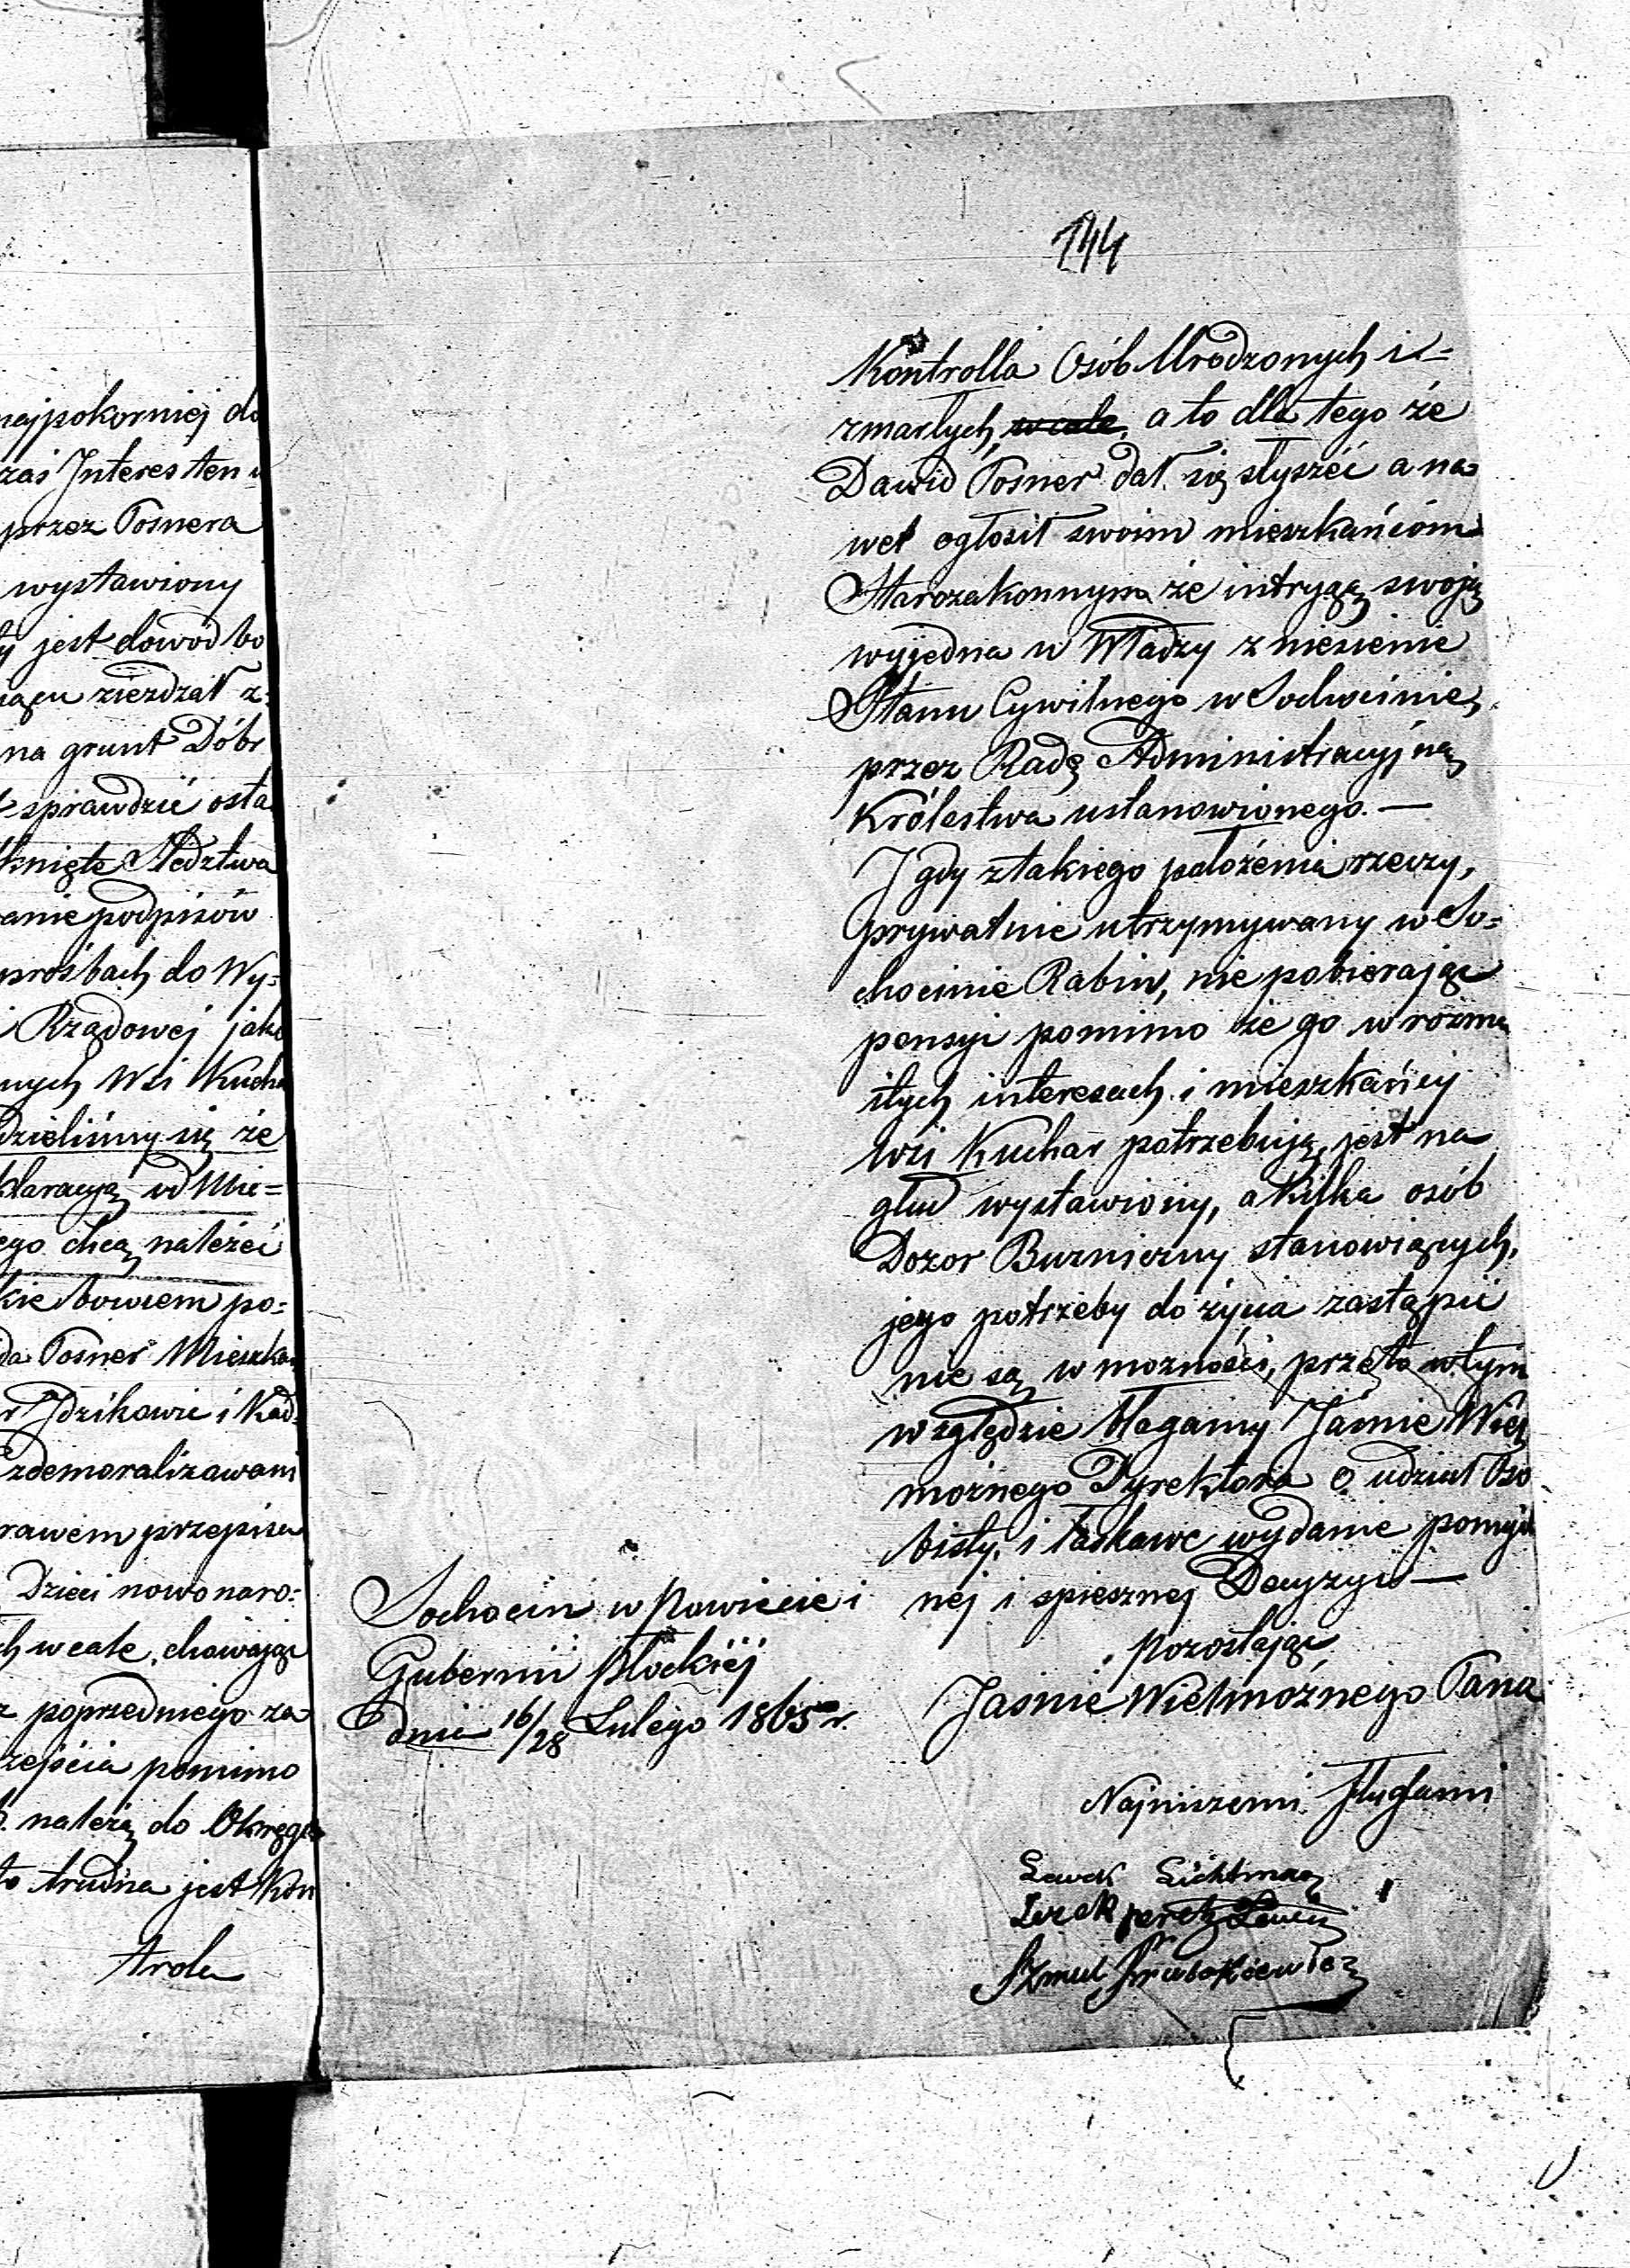 najpokorniej do
zaś Interes ten
przez Posnera
wystawiony
jest dowód bo
zieżdzał z
na grunt Dóbr
sprawdzić osta
knięte Sledztwa
anie podpisów
prośbach do Wy-
Rządowej jako
nych Wsi Kucha
dzieliśmy się że
klaracyą od Mie=
ego chcą należeć
kie bowiem po=
da Posner Mieszkań
Idzikowie i Kad
zdemoralizowani
rawem przepisu
Dzieci nowonaro=
h wcale, chowając
z poprzedniego za
zejścia pomimo
należą do Okręgu
to trudna jest Kon
trola
144
Kontrolla Osób Urodzonych i
zmarłych, wcale, a to dla tego że
Dawid Posner dał się słyszéć a na
wet ogłosił swoim mieszkańcóm
Starozakonnym że intrygą swoją
wyjedna u Władzy zniesienie
Stanu Cywilnego w Sochocinie,
przez Radę Administracyjną
Królestwa ustanowionego. —
I gdy z takiego położenia rzeczy,
prywatnie utrzymywany w So=
chocinie Rabin, nie pobierając
pensyi pomimo że go w rozma
itych interesach i mieszkańcy
wsi Kuchar potrzebują, jest na
głud wystawiony, a kilka osób
Dozor Bużniczny stanowiących,
jego potrzeby do życia zastąpić
nie są w możności, przeto w tym
względzie błagamy Jaśnie Wiel
możnego Dyrektora o udział Oso
bisty, i łaskawe wydanie pomyśl
nej i spiesznej Decyzyi —
pozostając
Jaśnie Wielmożnego Pana
Najniższemi Sługami
Sochocin w Powiecie i
Gubernii Płockiéj
dnia 16/28 Lutego 1865 r.
Lewek Lichtman
Icek peretz Lewin
Szmul